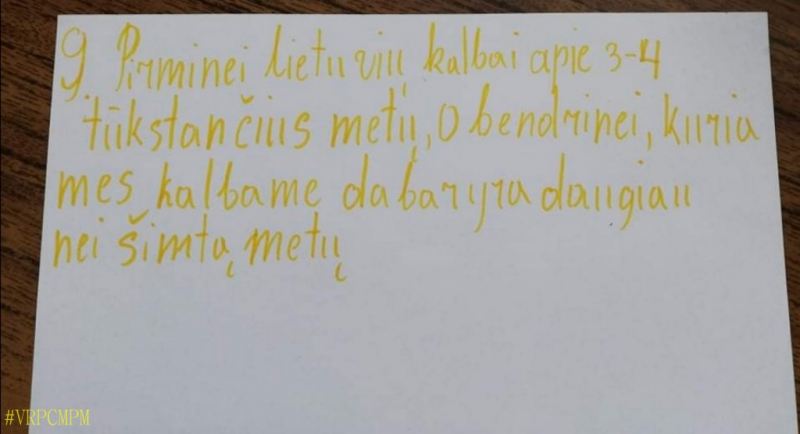 9. Pirminei lietuvių kalbai apie 3-4
tūkstančius metų, o bendrinei, kuria
mes kalbame dabar yra daugiau
nei šimtą metų
#VRPCMPM